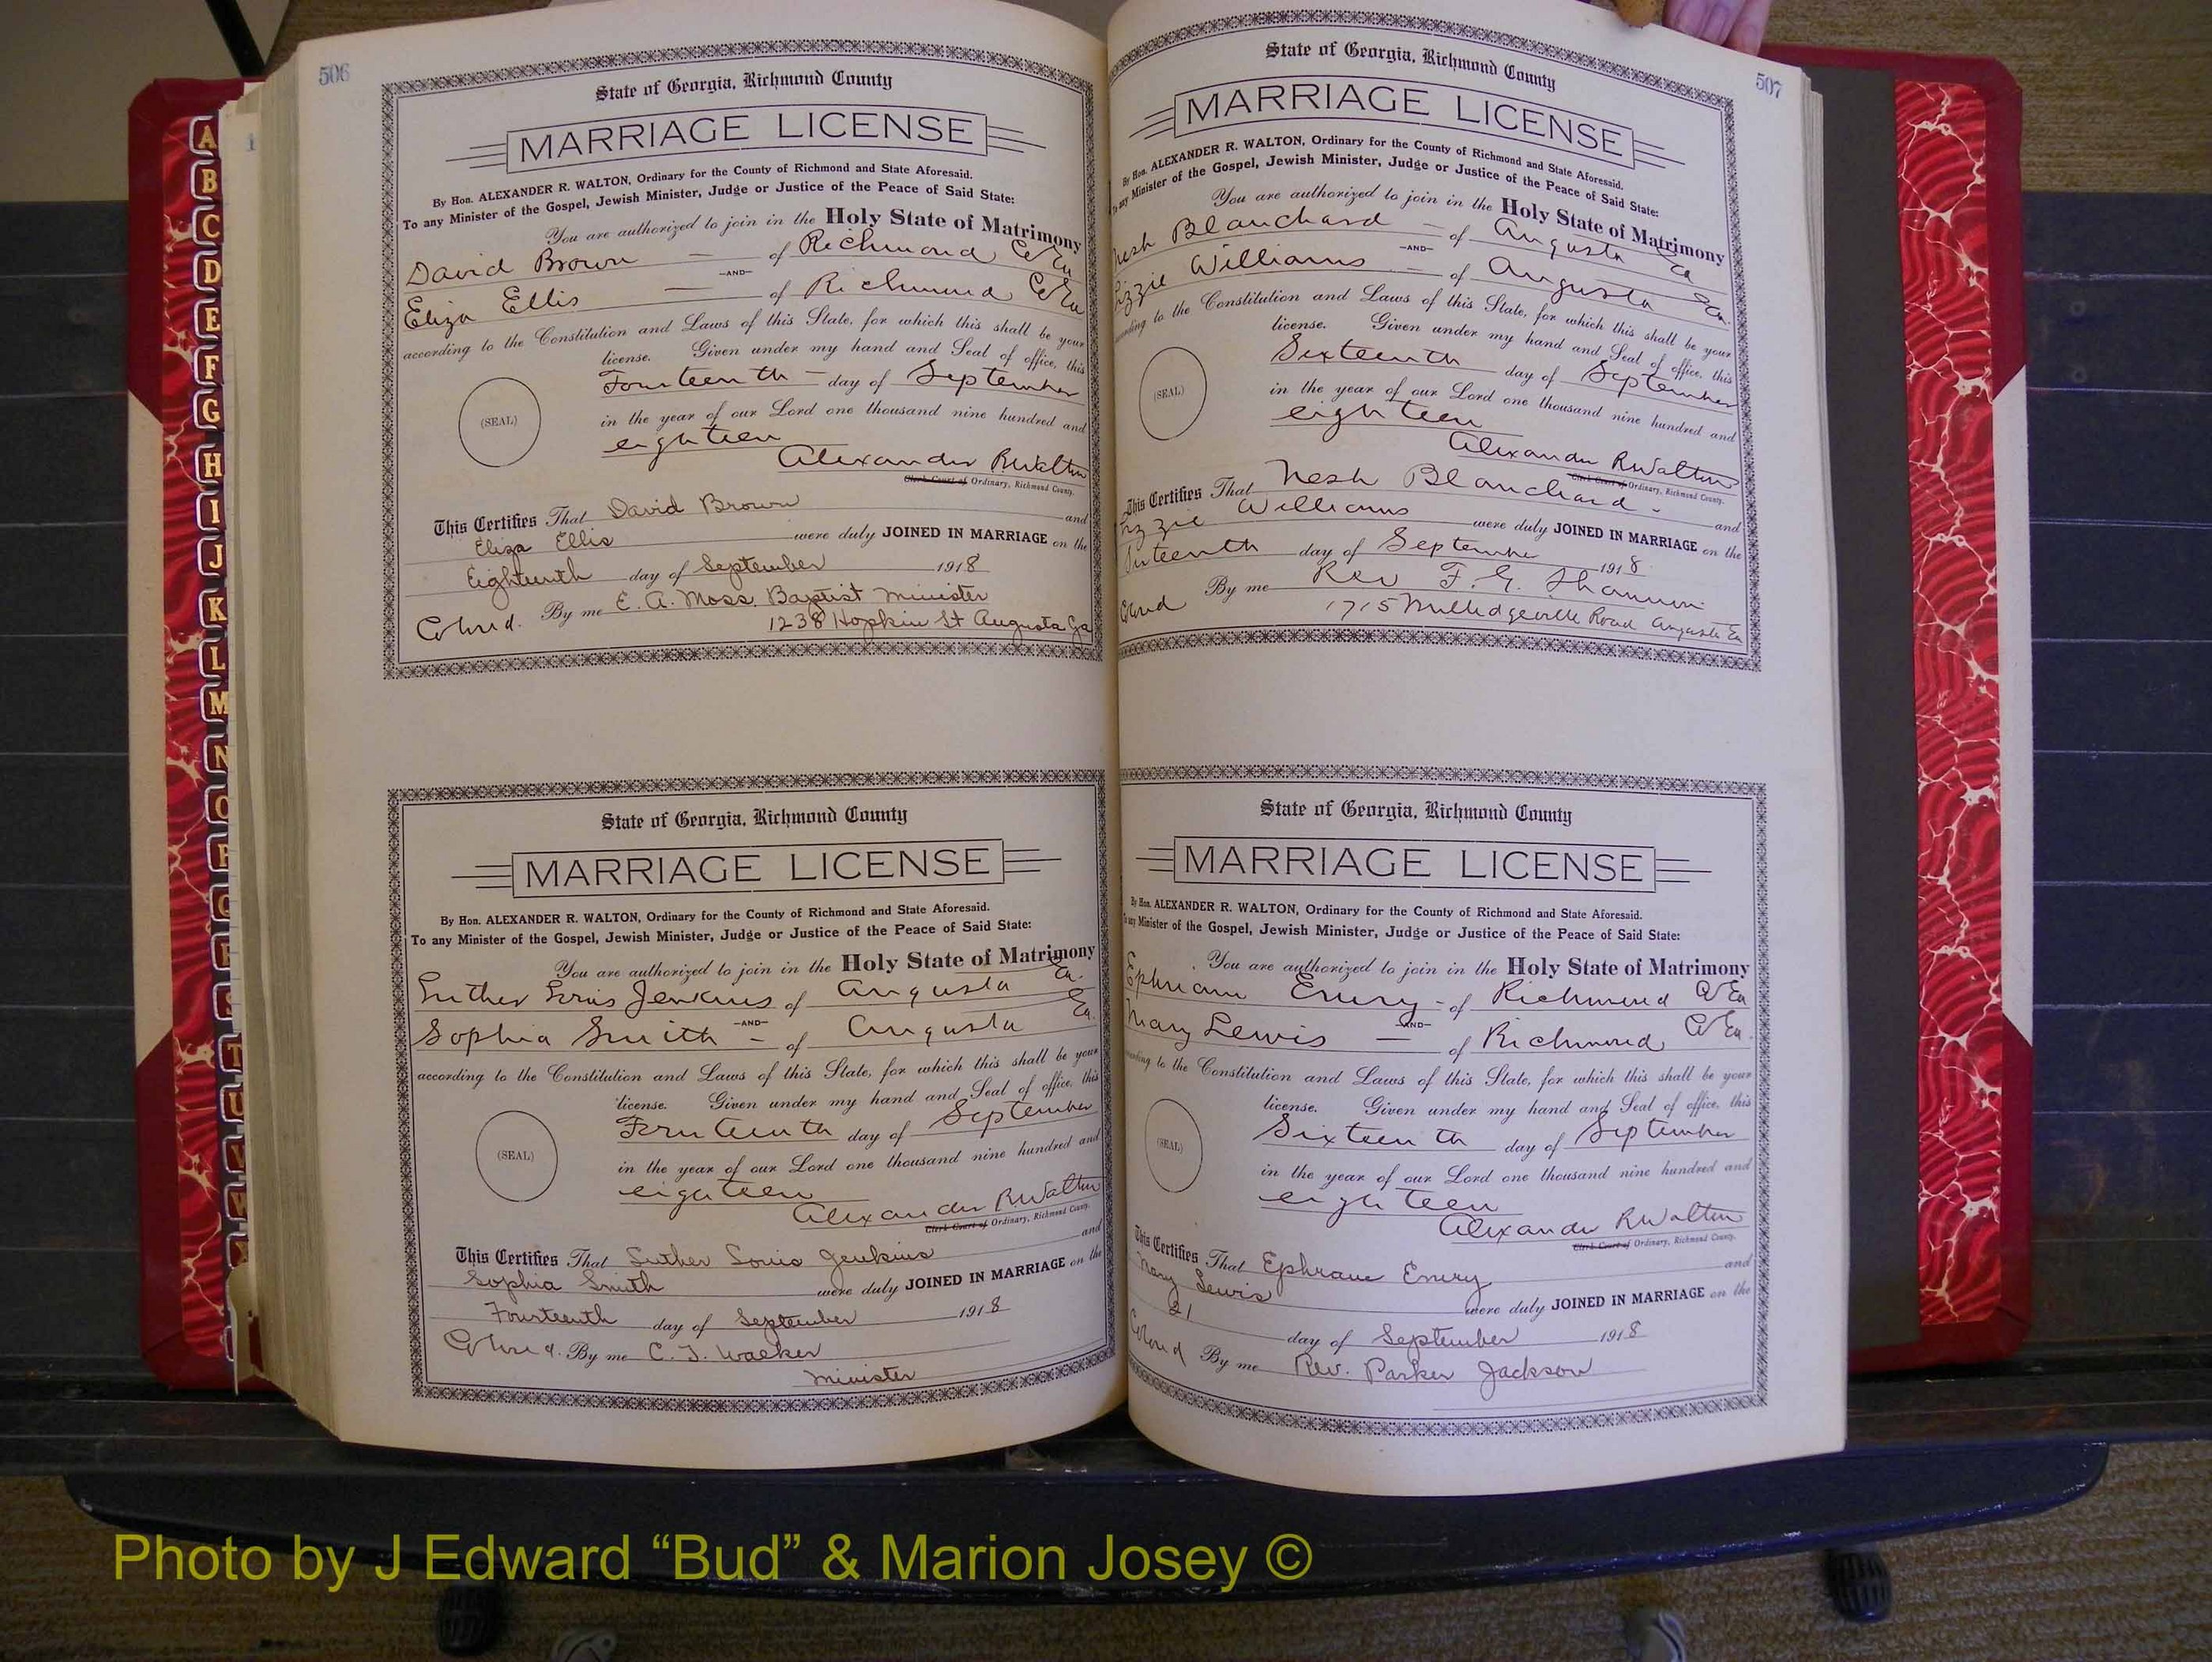 506
State of Georgia, Richmond County
MARRIAGE LICENSE
By Hon. ALEXANDER R. WALTON, Ordinary for the County of Richmond and State Aforesaid.
To any Minister of the Gospel, Jewish Minister, Judge or Justice of the Peace of Said State:
You are authorized to join in the Holy State of Matrimony
David Brown — of Richmond Co Ga
—AND—
Eliza Ellis — of Richmond Co Ga
according to the Constitution and Laws of this State, for which this shall be your
license. Given under my hand and Seal of office, this
Fourteenth — day of September
(SEAL)
in the year of our Lord one thousand nine hundred and
eighteen
Alexander R Walton
Clerk Court of Ordinary, Richmond County.
This Certifies That David Brown and
Eliza Ellis were duly JOINED IN MARRIAGE on the
Eighteenth day of September 1918
Colored. By me E. A. Moss. Baptist Minister
1238 Hopkin St Augusta Ga
State of Georgia, Richmond County
MARRIAGE LICENSE
By Hon. ALEXANDER R. WALTON, Ordinary for the County of Richmond and State Aforesaid.
To any Minister of the Gospel, Jewish Minister, Judge or Justice of the Peace of Said State:
You are authorized to join in the Holy State of Matrimony
Luther Louis Jenkins of Augusta Ga.
—AND—
Sophia Smith — of Augusta Ga.
according to the Constitution and Laws of this State, for which this shall be your
license. Given under my hand and Seal of office, this
Fourteenth day of September
(SEAL)
in the year of our Lord one thousand nine hundred and
eighteen
Alexander R Walton
Clerk Court of Ordinary, Richmond County.
This Certifies That Luther Louis Jenkins and
Sophia Smith were duly JOINED IN MARRIAGE on the
Fourteenth day of September 1918
Colored. By me C. T. Walker
Minister
507
State of Georgia, Richmond County
MARRIAGE LICENSE
By Hon. ALEXANDER R. WALTON, Ordinary for the County of Richmond and State Aforesaid.
To any Minister of the Gospel, Jewish Minister, Judge or Justice of the Peace of Said State:
You are authorized to join in the Holy State of Matrimony
Blanchard — of Augusta Ga
—AND—
Lizzie Williams — of Augusta Ga.
according to the Constitution and Laws of this State, for which this shall be your
license. Given under my hand and Seal of office, this
Sixteenth day of September
(SEAL)
in the year of our Lord one thousand nine hundred and
eighteen
Alexander R Walton
Clerk Court of Ordinary, Richmond County.
This Certifies That Blanchard - and
Lizzie Williams were duly JOINED IN MARRIAGE on the
day of September 1918
Colored By me Rev F. G. Shannon
1715 Milledgeville Road Augusta Ga
State of Georgia, Richmond County
MARRIAGE LICENSE
By Hon. ALEXANDER R. WALTON, Ordinary for the County of Richmond and State Aforesaid.
To any Minister of the Gospel, Jewish Minister, Judge or Justice of the Peace of Said State:
You are authorized to join in the Holy State of Matrimony
Ephriam Emery - of Richmond Co Ga
—AND—
Mary Lewis — of Richmond Co Ga.
according to the Constitution and Laws of this State, for which this shall be your
license. Given under my hand and Seal of office, this
Sixteenth day of September
(SEAL)
in the year of our Lord one thousand nine hundred and
eighteen
Alexander R Walton
Clerk Court of Ordinary, Richmond County.
This Certifies That Ephraim Emery and
Mary Lewis were duly JOINED IN MARRIAGE on the
21 day of September 1918
Colored By me Rev. Parker Jackson
A
B
C
D
E
F
G
H
I
J
K
L
M
N
O
P
Q
R
S
T
U
V
W
Photo by J Edward “Bud” & Marion Josey ©